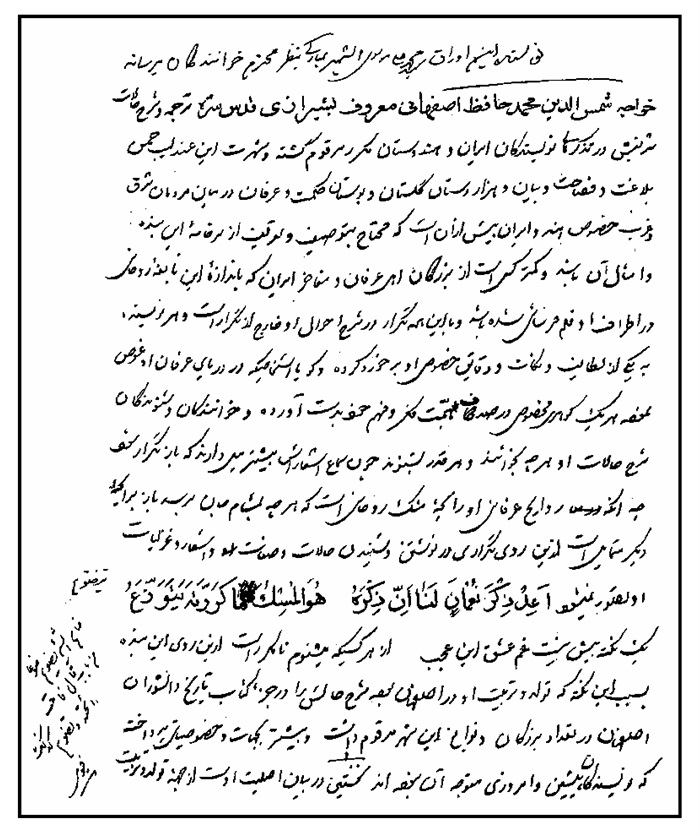 نویسنده اینیم اوراق بنظر محترم خوانندگان میرساند
خواجه شمس الدین محمد حافظ اصفهانی معروف بشیرازی قدس سره ترجمه و شرح حالات
نویسندگان ایران و هندوستان مکرر مرقوم گشته و شهرت این عندلیب چمن
بلاغت و فصاحت و بیان و هزار دستان گلستان و بوستان حکمت و عرفان در میان مردمان شرق
و غرب خصوص هند و ایران بیش از آن است که محتاج بتوصیف و تعریف از مرقامهٔ این بنده
و امثال آن باشد و کمتر کسی است از بزرگان اهل عرفان و مفاخر ایران که باندازهٔ این نابغه روحانی
در اطراف او قلم فرسائی شده باشد و با این همه تکرار در شرح احوال او خارج از تکرار است و هر نویسنده
به یکی از لطایف و نکات و دقایق خصوصی او برخورد کرده و گویا اشخاصیکه در دریای عرفان او غوص
هر یک گوهری مخصوص در صدف فهم خود بدست آورده و خوانندگان و شنوندگان
شرح حالات او هر چه بخوانند و هر قدر بشنوند چون سماع اشعارش بیشتر میل دارند که باز تکرار شود
چه آنکه روایح عرفانی او رایحهٔ مشک روحانی است که هر چه بمشام جان برسد باز برایحهٔ
دیگر متمایل است ازین روی تکراری در نوشتن و شنیدن حالات و صفات و اشعار و غزلیات
او تصور نمیشود اَعِدْ ذِکْرَ نُعمانٍ لَنا اِنَّ ذِکْرَهُ هُوَ المِسْکُ ما کَرَّرْتَهُ یَتَضَوَّعُ
یک نکته بیش نیست غم عشق این عجب از هر کسیکه میشنوم نامکرر است ازین روی این بنده
بسبب این نکته که تولد و تربیت او در اصفهان شرح حالش را در جزء کتاب تاریخ دانشوران
اصفهان در تعداد بزرگان و نوابغ این شهر مرقوم داشت و بیشتر بجهات و خصوصیاتی پرداخته
که نویسندگان پیشین و امروزی متوجه آن نشده اند نخستین در بیان اصلیت اوست از جهة تولد و تربیت
یتضوع